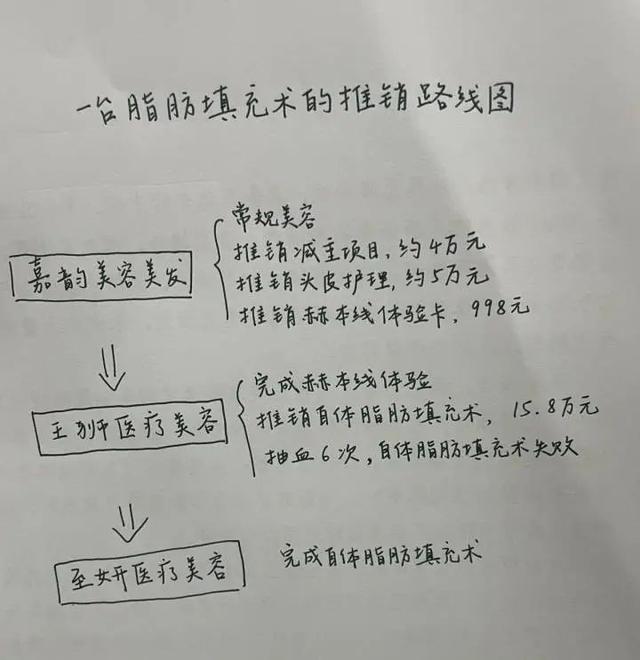 一台脂肪填充术的推销路线图
嘉韵美容美发
常规美容
推销减重项目,约4万元
推销头皮护理,约5万元
推销赫本线体验卡,998元
王狮医疗美容
完成赫本线体验
推销自体脂肪填充术,15.8万元
抽血6次,自体脂肪填充术失败
至妍医疗美容
完成自体脂肪填充术